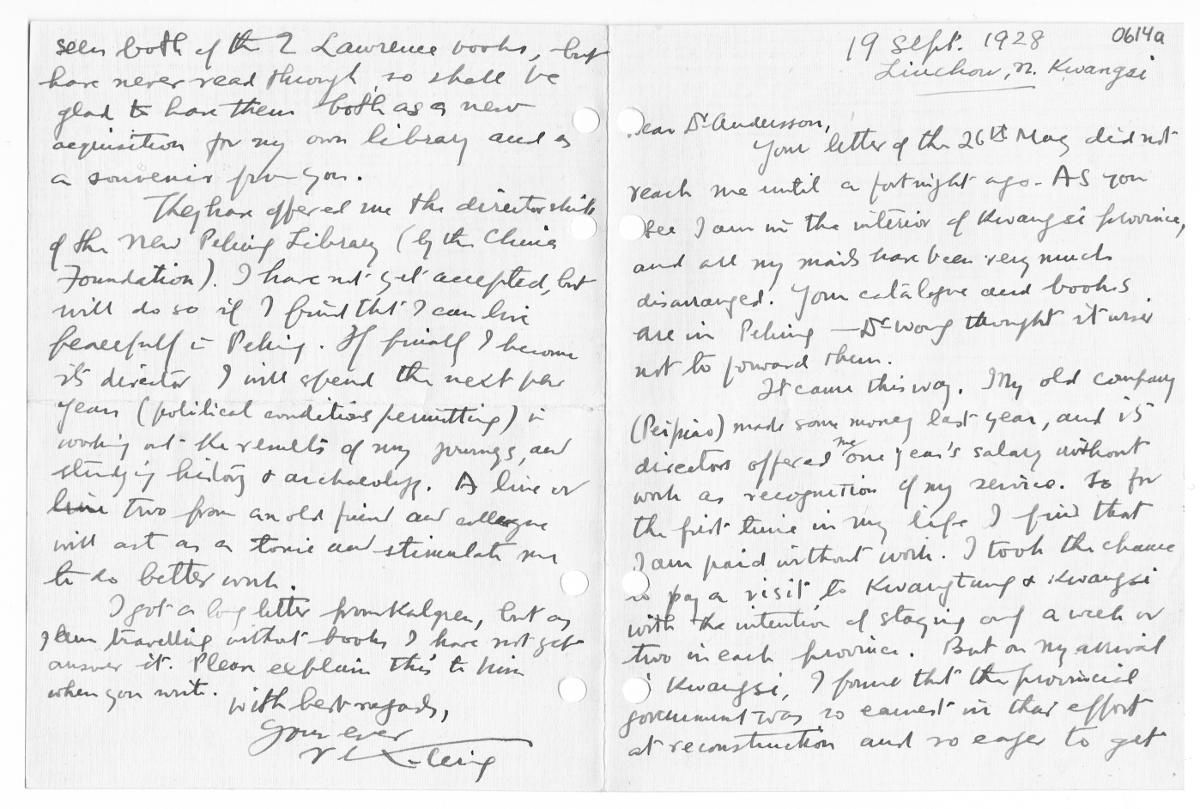 0614a
19 Sept. 1928
Liuchow, N. Kwangsi
Dear Dr Andersson,
Your letter of the 26th May did not
reach me until a fortnight ago. As you
see I am in the interior of Kwangsi province,
and all my mails have been very much
disarranged. Your catalogue and books
are in Peking — Dr Wong thought it wiser
not to forward them.
It came this way. My old company
(Peipiao) made some money last year, and its
directors offered me one year's salary without
work as recognition of my service. So for
the first time in my life I find that
I am paid without work. I took the chance
to pay a visit to Kwangtung & Kwangsi
with the intention of staying only a week or
two in each province. But on my arrival
Kwangsi, I found that the provincial
government was so earnest in their effort
at reconstruction and so eager to get
seen both of the 2 Lawrence books, but
have never read through, so shall be
glad to have them both as a new
acquisition for my own library and as
a souvenir from you.
They have offered me the directorship
of the New Peking Library (by the China
Foundation). I have not yet accepted, but
will do so if I find that I can live
peacefully in Peking. If finally I become
its director I will spend the next few
years (political conditions permitting) in
working out the results of my journeys, and
studying history & archaeology. A line or
line two from an old friend and colleague
will act as a tonic and stimulate me
to do better work.
I got a long letter from Karlgren, but as
I am travelling without books I have not yet
answer it. Please explain this to him
when you write.
With best regards,
Yours ever
V. K. Ting